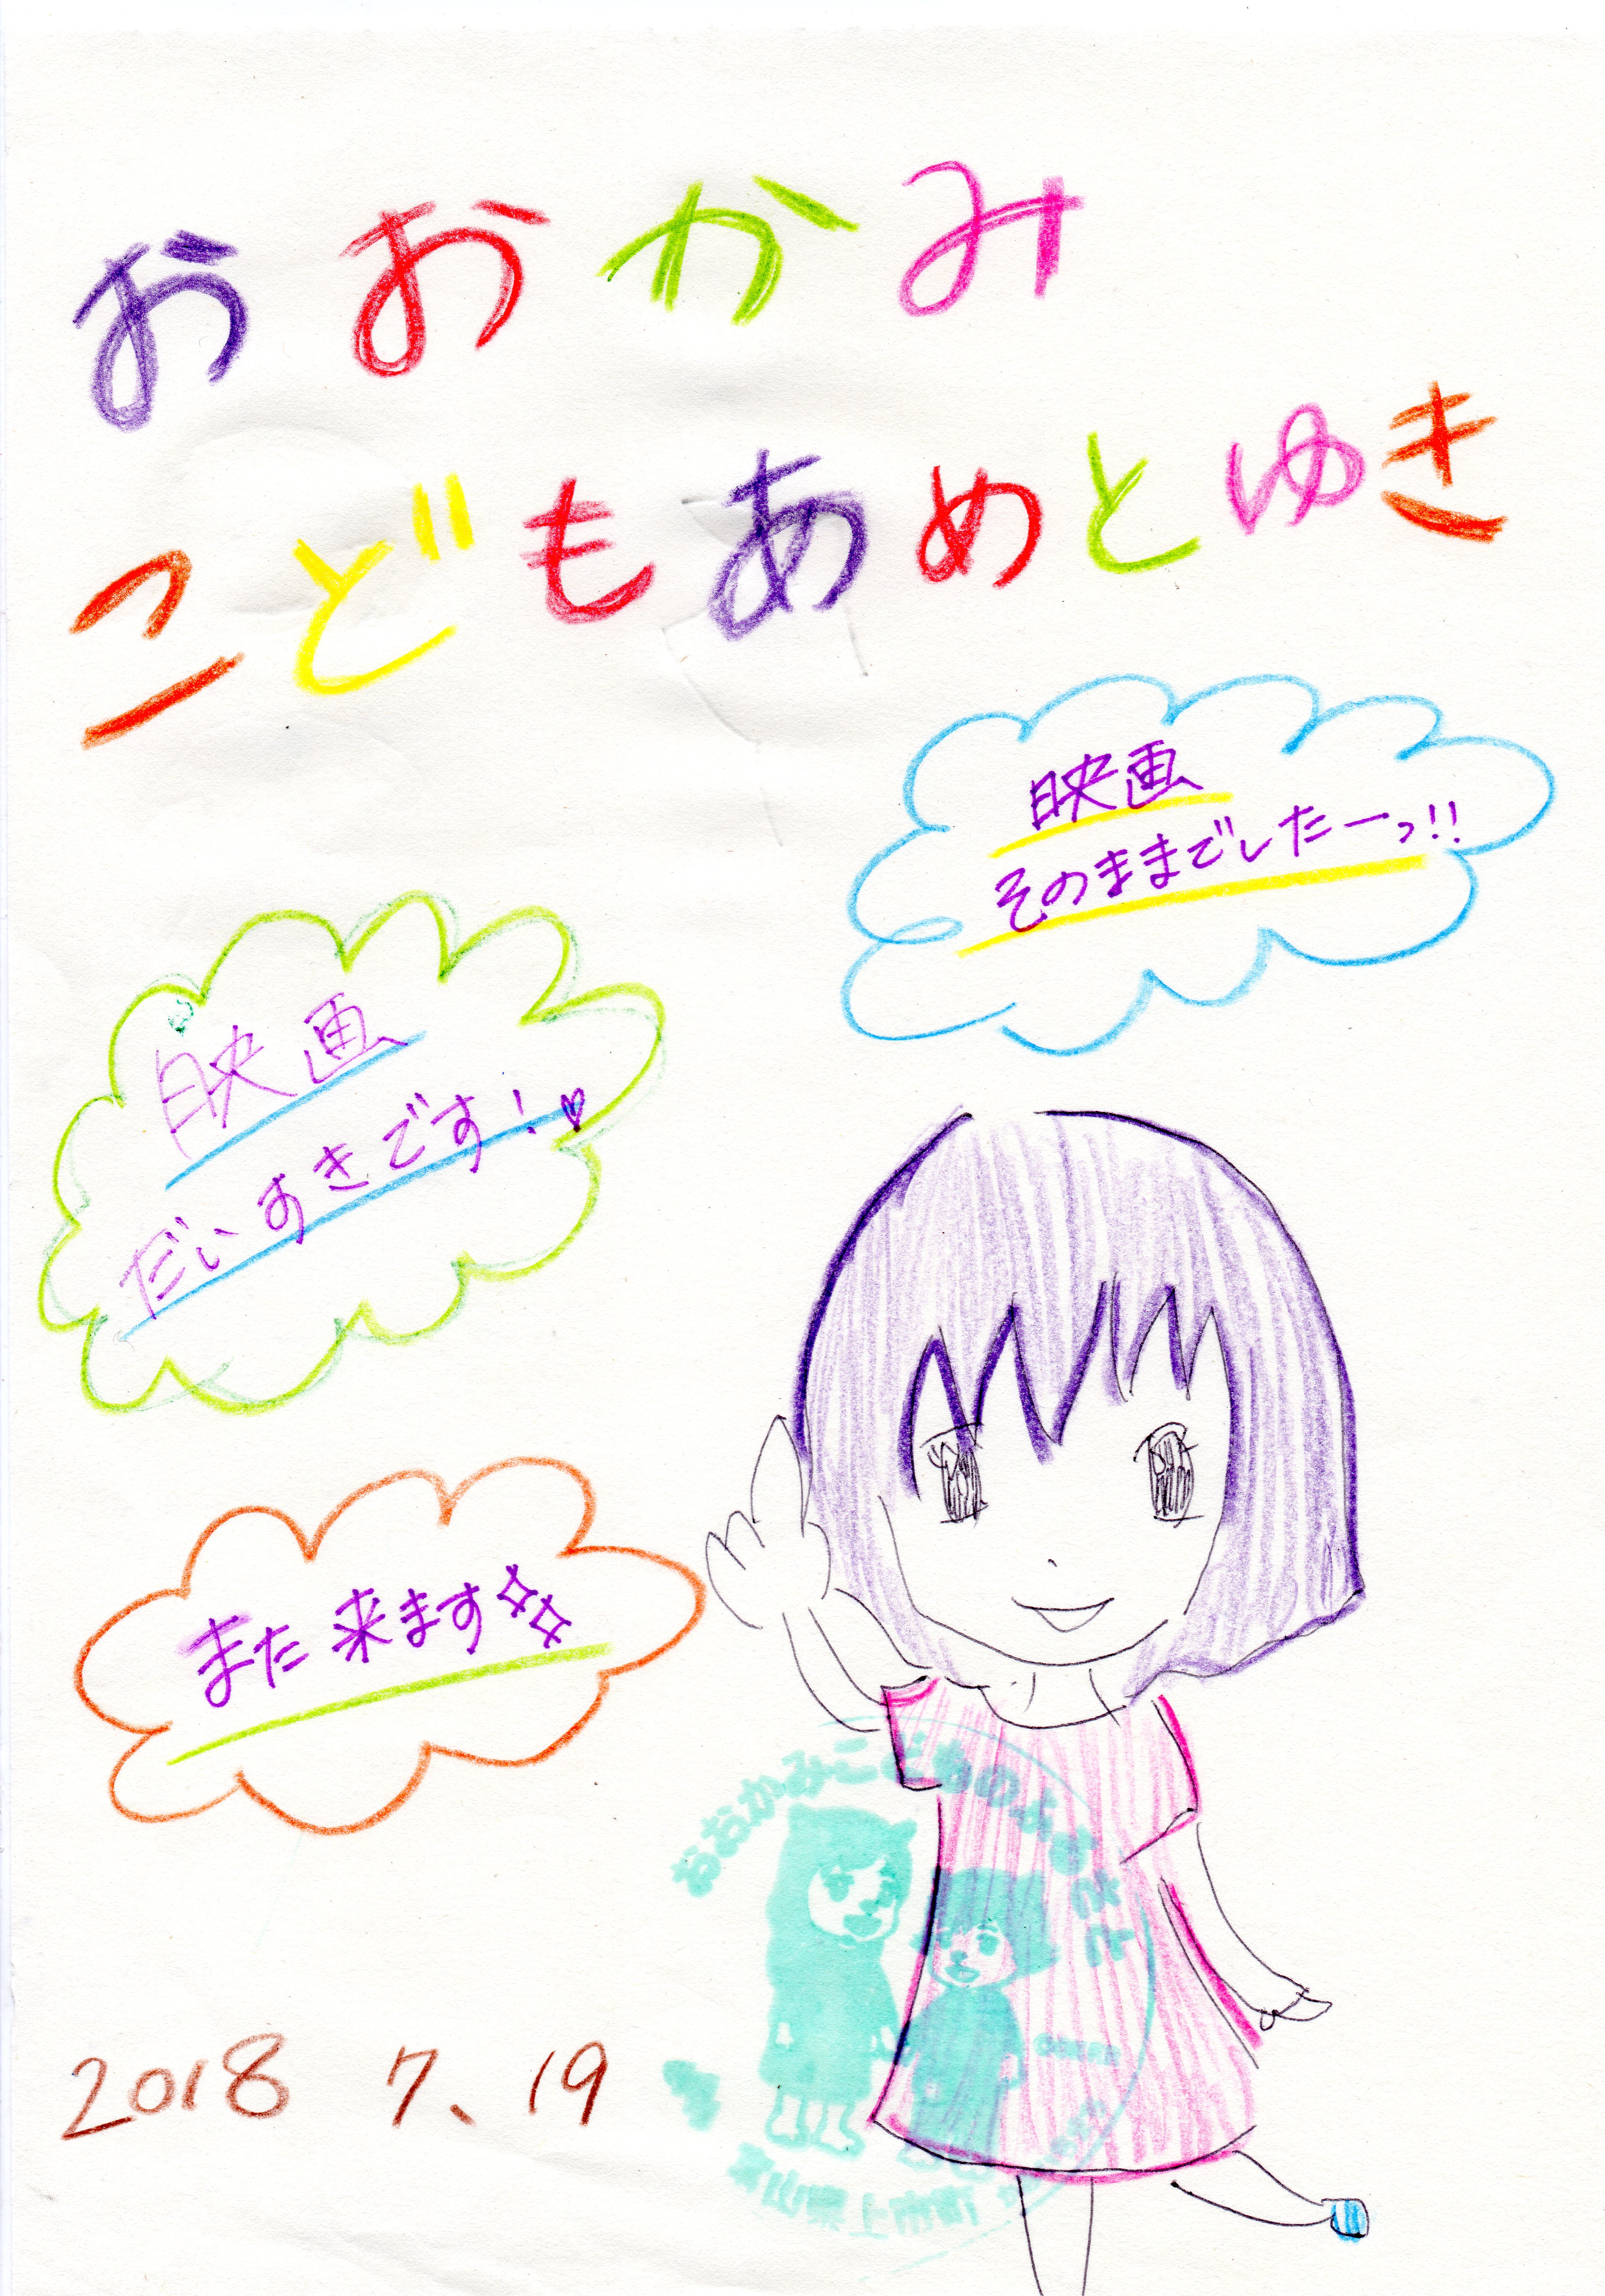 おおかみ
こどもあめとゆき
映画
そのままでしたーっ!!
映画
だいすきです!♡
また来ます
2018 7、19
おおかみこどもの